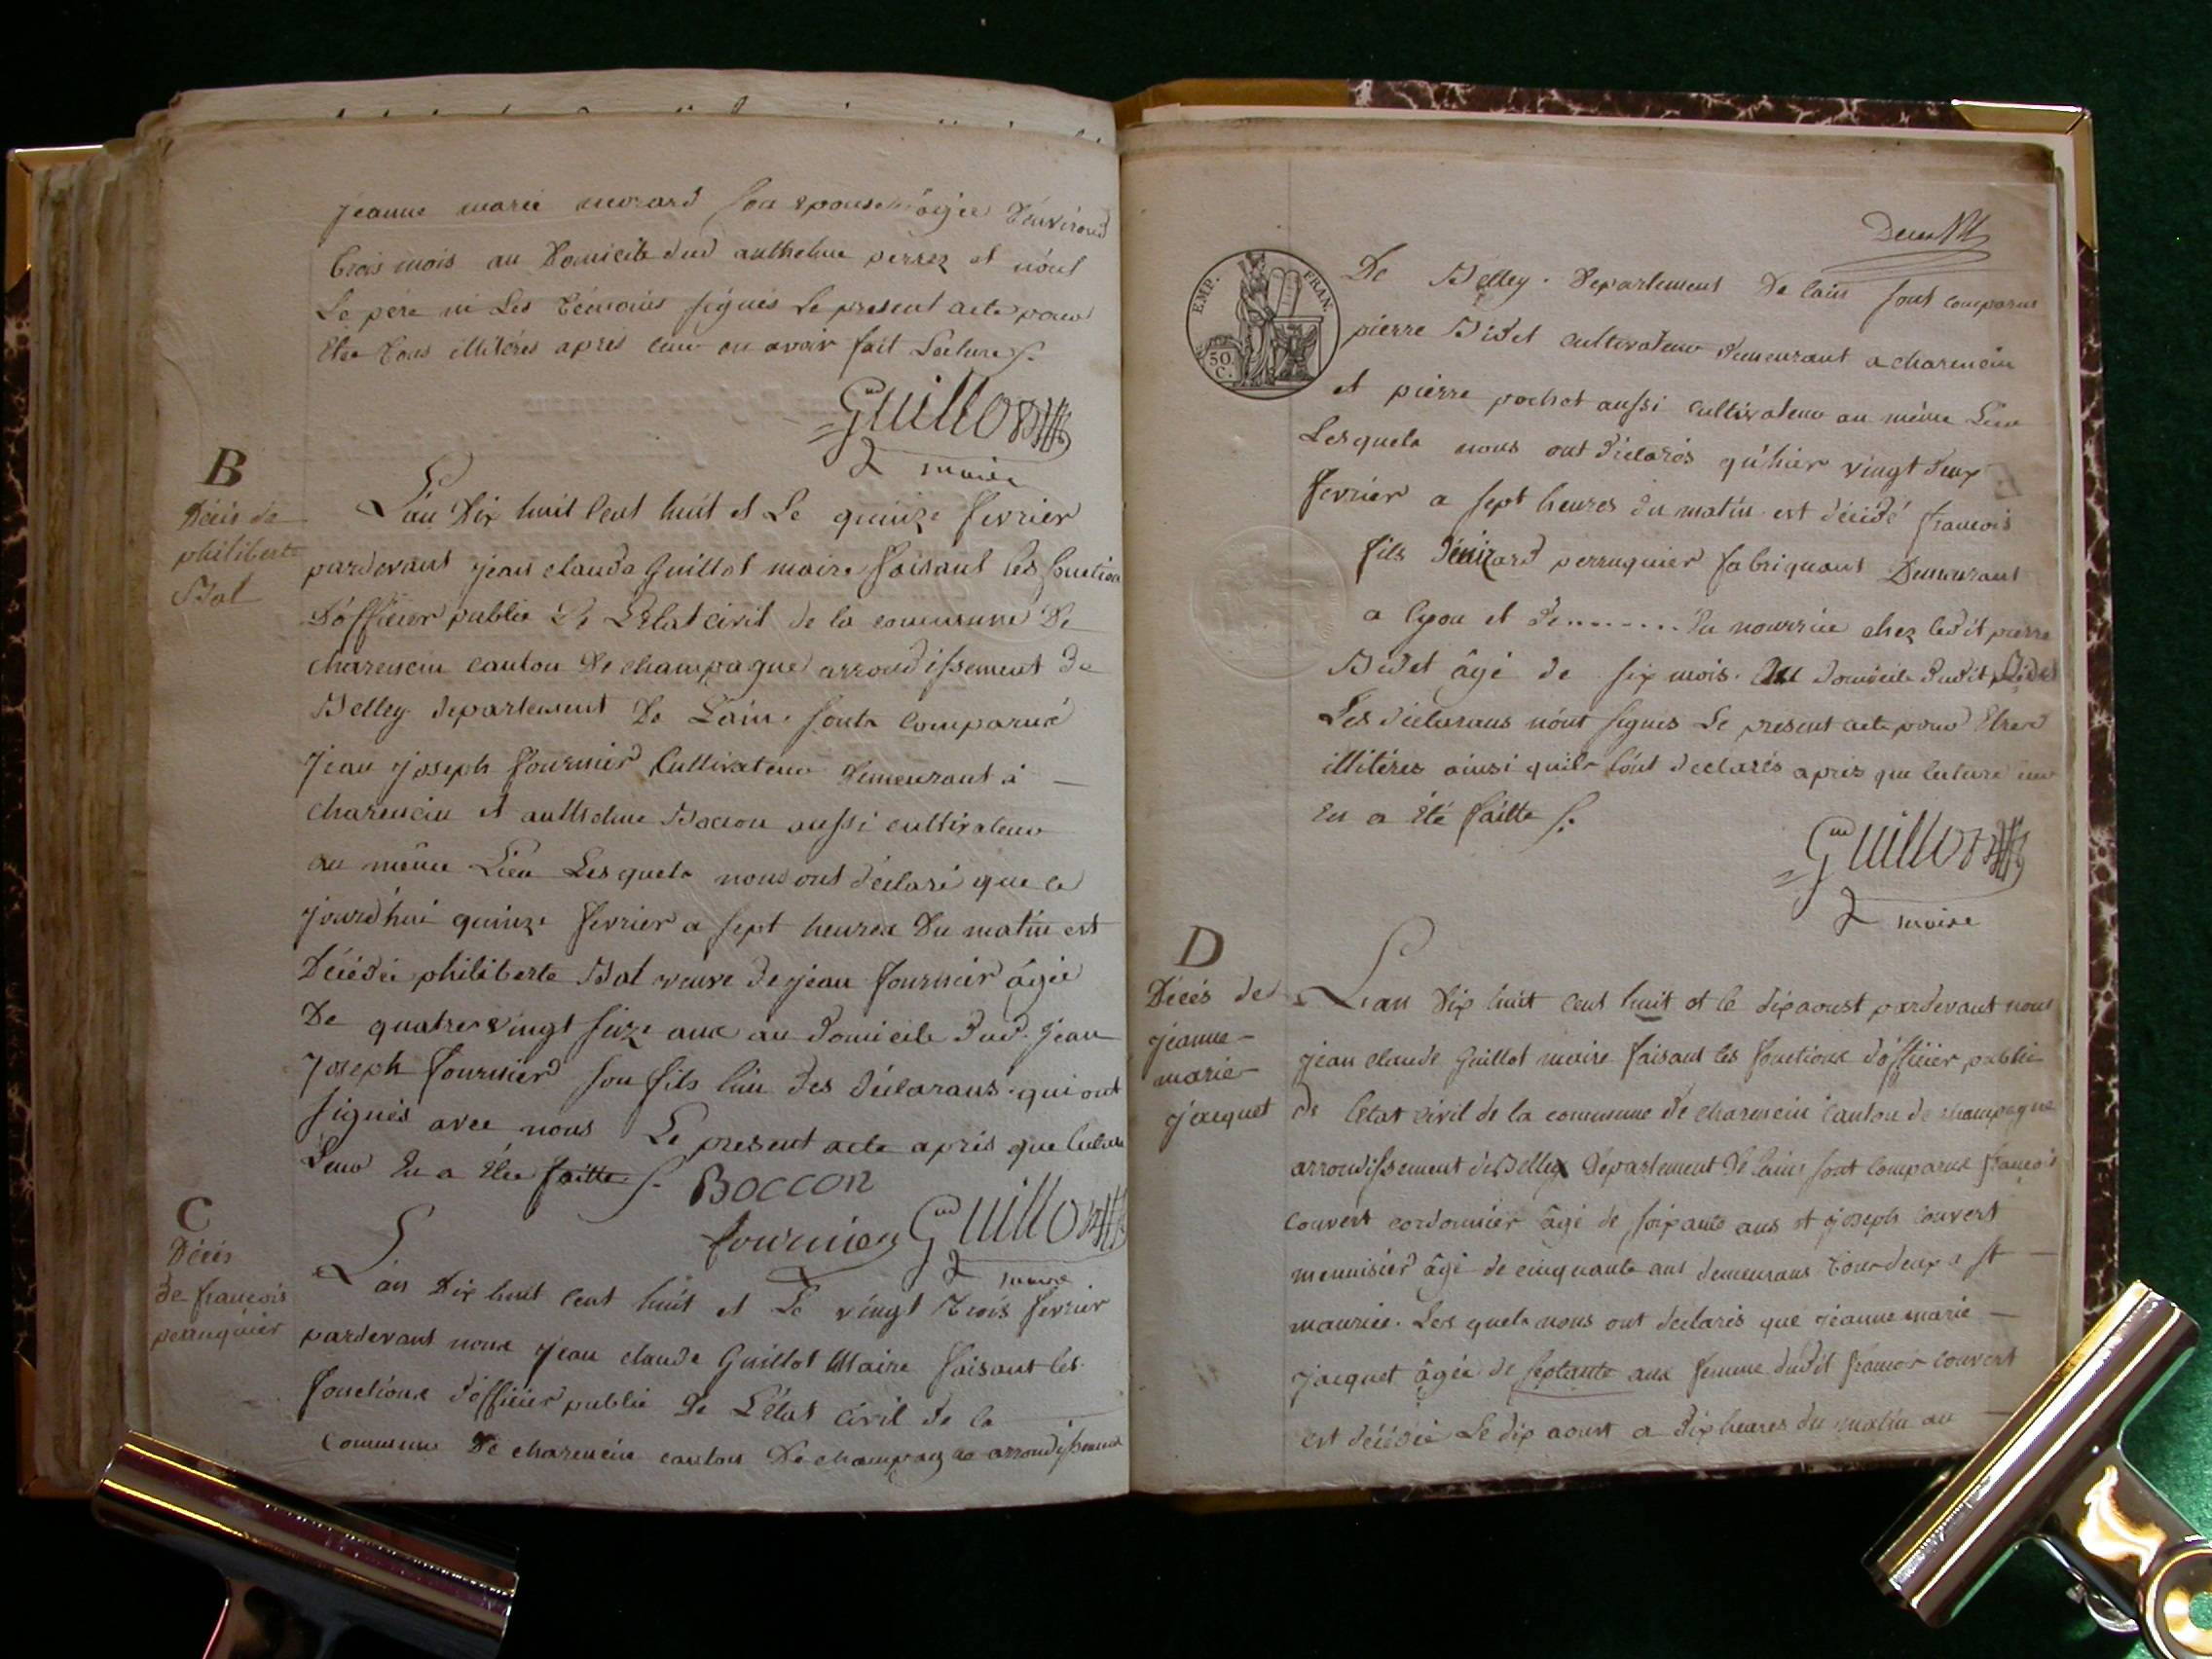 jeanne marie morard son epouse âgée d'environ
trois mois au Domicile dud anthelme perrez et n'ont
Le pére ni Les témoins signés Le present acte pour
être tous illitérés aprés leur en avoir fait Lecture
Guillot
maire
B
Décès de
philiberte
Bal
L'an Dix huit Cent huit et Le quinze fevrier
pardevant jean claude Guillot maire faisant les fonction
D'officier public De L'Etat civil de la commune De
charencin canton De champagne arrondissement de
Belley departement De Lain. sonts Comparus
jean joseph fournier Cultivateur demeurant à
charencin et anthelme Boccon aussi cultivateur
au même Lieu Lesquels nous ont déclaré que ce
jourd'hui quinze fevrier a sept heures Du matin est
Décédée philiberte Bal veuve de jean fournier âgée
De quatre vingt seize ans au domicile dud. jean
joseph fournier son fils l'un des déclarans qui ont
signés avec nous Le present acte aprés que lecture
Leur En a Etée faitte
Boccon
fournier Guillot
maire
C
Décés
de francois
perruquier
L'an Dix huit Cent huit et Le vingt trois fevrier
pardevant nous jean claude Guillot Maire faisant les
fonctions d'officier public De L'état Civil de la
Commune De charencin canton De champagne arrondissement
EMP. FRAN.
50
C.
De Belley. Departement De lain sont comparus
pierre Bidet cultivateur demeurant a charencin
et pierre pochet aussi cultivateur au même Lieu
Lesquels nous ont déclarés qu'hier vingt deux
fevrier a sept heures du matin est décédé francois
fils perruquier fabriquant Demeurant
a lyon et de......... En nourrice chez ledit pierre
Bidet âgé de six mois. Au domicile dudit Bidet
Les déclarans n'ont signés Le present acte pour Etre
illitérés ainsi quils l'ont declarés aprés que lecture leur
En a été faitte
Guillot
maire
D
Décés de
jeanne-
marie-
jacquet
L'an Dix huit Cent huit et le dix aoust pardevant nous
jean claude Guillot maire faisant les fonctions d'officier public
de l'état civil de la commune de charencin canton de champagne
arrondissement de Belley Département De lain sont Comparus francois
Couvert cordonnier âgé de soixante ans et joseph Couvert
menuisier âgé de cinquante ans demeurans tous deux a st
maurice. Lesquels nous ont déclarés que jeanne marie
jacquet âgée de septante ans femme dudit francois Couvert
est décédée Le dix aoust a dix heures du matin au